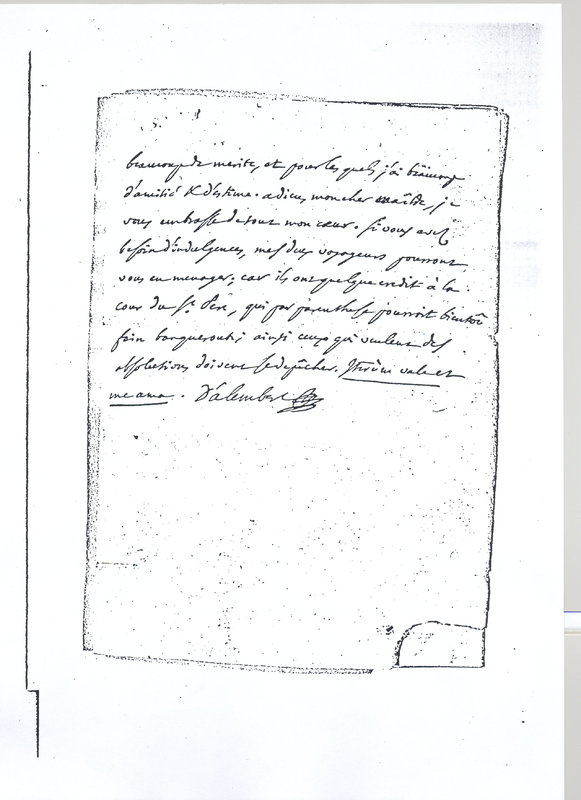 beaucoup de merite, et pour les quels j'ai beaucoup
d'amitié & d'estime. adieu mon cher maître, je
vous embrasse de tout mon cœur. si vous avez
besoin d'indulgences, mes deux voyageurs pourront
vous en menager; car ils ont quelque credit à la
cour du St. Pere, qui par parenthese pourroit bientôt
faire banqueroute; ainsi ceux qui veulent des
absolutions doivent se depêcher. Iterùm vale et
me ama. D'alembert